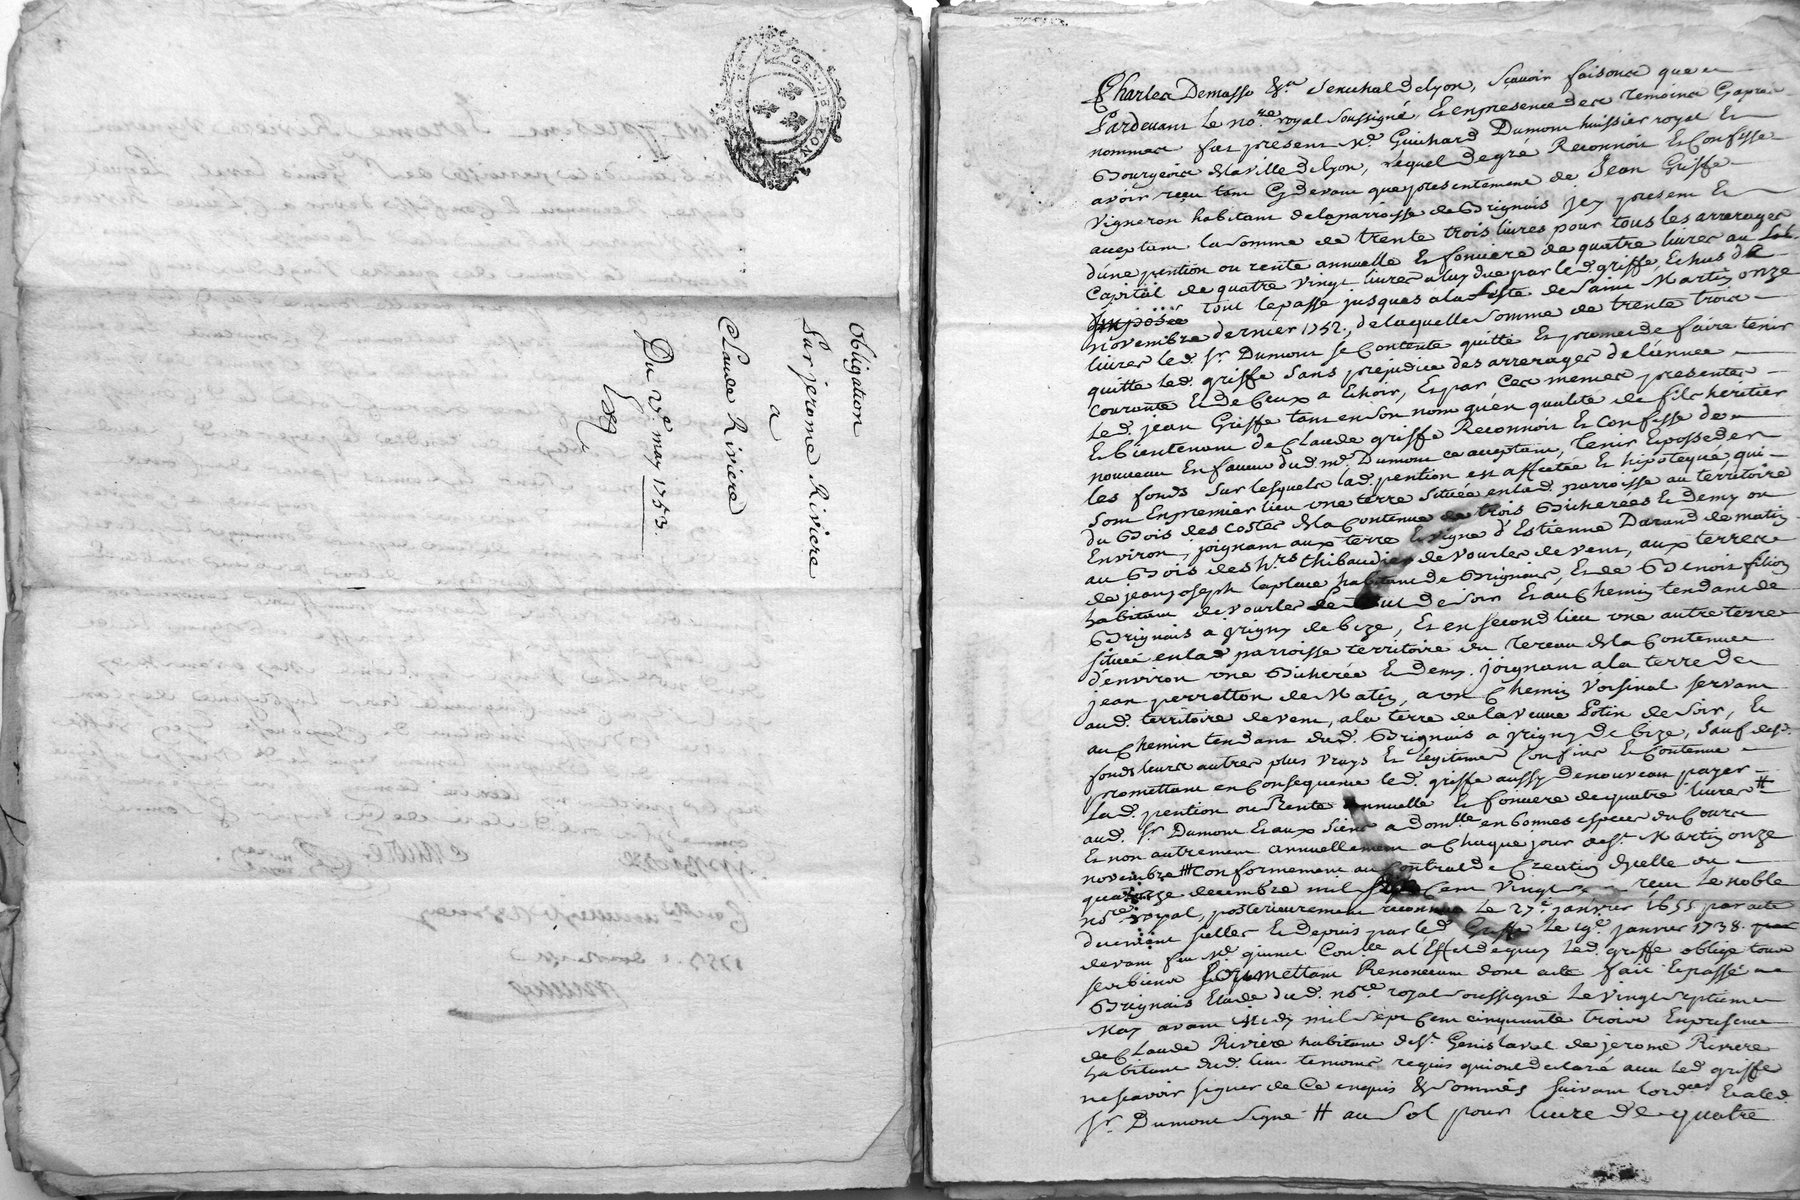 GEN. DE LYON
Obligation
Sur jerome Riviere
a
Claude Riviere
Du may 1753.
Charles Demasso &ra Senechal de lyon, Scavoir faisons que
Pardevant le nore royal soussigné, et en presence des temoins cy apres
nommes fut present Me Guichard Dumont huissier royal et
Bourgeois de la ville de lyon, lequel de gré Reconnoit et Confesse
avoir reçu tant cy devant que presentement de Jean Griffe
vigneron habitant de la parroisse de Brignais icy present et
acceptant la somme de trente trois livres pour tous les arrerages
d'une pention ou rente annuelle et fonciere de quatre livres au
Capital de quatre vingt livres a luy due par led. griffe, Echus de
tout le passé jusques a la feste de saint Martin onze
novembre dernier 1752, de laquelle somme de trente trois
livres led. Sr. Dumont se Contente quitte et promet de faire tenir
quitte led. griffe sans prejudice des arrerages de l'année
courante et de Ceux a Echoir, Et par Ces memes presentes
led. jean Griffe tant en son nom qu'en qualité de fils heritier
et bientenant de Claude griffe Reconnoit et Confesse de
nouveau En faveur dud. me. Dumont ce acceptant, tenir et posseder
les fonds sur lesquels lad. pention est affectée et hipotequée, qui
sont En premier lieu une terre située en lad. parroisse au territoire
du Bois des Costes de la Contenue de trois Bicherées et demy ou
Environ, joignant aux terre et vigne d'Estienne Durand de matin
au Bois des hrs thibaudier de vourles de vent, aux terres
de jean joseph laplace habitant de Brignais, et de Benoit filion
habitant de vourles de soir et au Chemin tendant de
Brignais a jrigny de bize, Et en second lieu une autre terre
située en lad. parroisse territoire du de la Contenue
d'environ une Bicherée et demy joignant a la terre de
jean perretton de Matin, a un Chemin voisinal servant
aud. territoire de vent, a la terre de la veuve Potin de soir, Et
au Chemin tendant dud. Brignais a jrigny de bize, sauf desd.
fonds leurs autres plus vrays et legitimes Confins et Contenue
promettant en Consequence led. griffe aussy de nouveau payer
lad. pention ou Rente annuelle et fonciere de quatre livres #
aud. Sr. Dumont et aux siens a domlle en bonnes especes du Cours
et non autrement annuellement a Chaque jour de St. Martin onze
novembre # Conformement au Contrat de Creation d'icelle du
quatorze decembre mil Cent vingt reçu le noble
nore royal, posterieurement reconnue le 27e janvier 1655 par acte
devant et depuis par led. Griffe le 19e. janvier 1738.
devant feu Me. quinet Conlle al Effet de quoy led. griffe oblige tous
ses biens Soumettant Renonceant dont acte fait et passé a
Brignais Etude dud. nore royal soussigné le vingt septieme
May avant midy mil sept Cent cinquante trois En presence
de Claude Riviere habitant de St. Genis laval de jerome Riviere
habitant dud. lieu temoins requis qui ont declaré avec led. griffe
ne scavoir signer de Ce enquis & sommés suivant lordce et a led.
Sr. Dumont signe # au sol pour livre de quatre